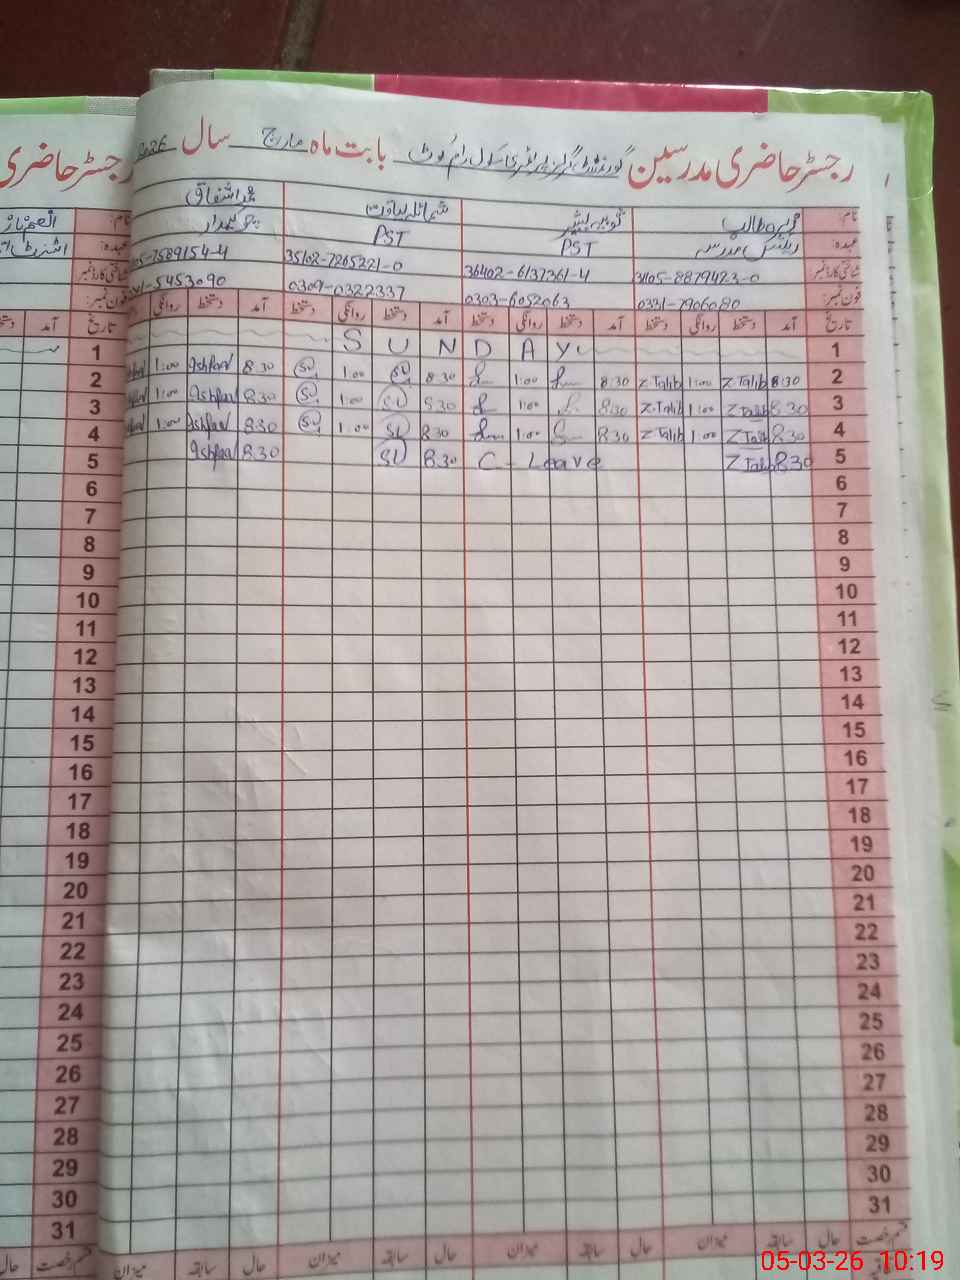 رجسٹر حاضری مدرسین گورنمنٹ گرلز پرائمری سکول رام کوٹ بابت ماہ مارچ سال 2026
نام: زیب طالب کوبیہ بشیر شمائلہ لیاقت محمد اشفاق
عہدہ: رئیس مدرسہ PST PST چوکیدار
شناختی کارڈ نمبر 3105-8879423-0 36402-6137361-4 35102-7265221-0 7589154-4
فون نمبر: 0331-7906080 0303-6052063 0309-0322337 5453090
تاریخ آمد دستخط روانگی دستخط آمد دستخط روانگی دستخط آمد دستخط روانگی دستخط آمد دستخط روانگی
1 SUNDAY 1
2 8:30 Z Talib 1:00 Z Talib 8:30 1:00 8:30 SU 1:00 SU 8:30 Ishfaq 1:00 2
3 8:30 Z Talib 1:00 Z.Talib 8:30 1:00 8:30 SU 1:00 SU 8:30 Ishfaq 1:00 3
4 8:30 Z Talib 1:00 Z Talib 8:30 1:00 8:30 SU 1:00 SU 8:30 Ishfaq 1:00 4
5 8:30 Z Talib C - Leave 8:30 SU 8:30 Ishfaq 5
6 6
7 7
8 8
9 9
10 10
11 11
12 12
13 13
14 14
15 15
16 16
17 17
18 18
19 19
20 20
21 21
22 22
23 23
24 24
25 25
26 26
27 27
28 28
29 29
30 30
31 31
حال سابقہ میزان حال سابقہ میزان حال سابقہ میزان حال سابقہ میزان
رجسٹر حاضری
نام:
عہدہ:
شناختی کارڈ نمبر
فون نمبر:
تاریخ آمد
قسم رخصت حال
05-03-26 10:19